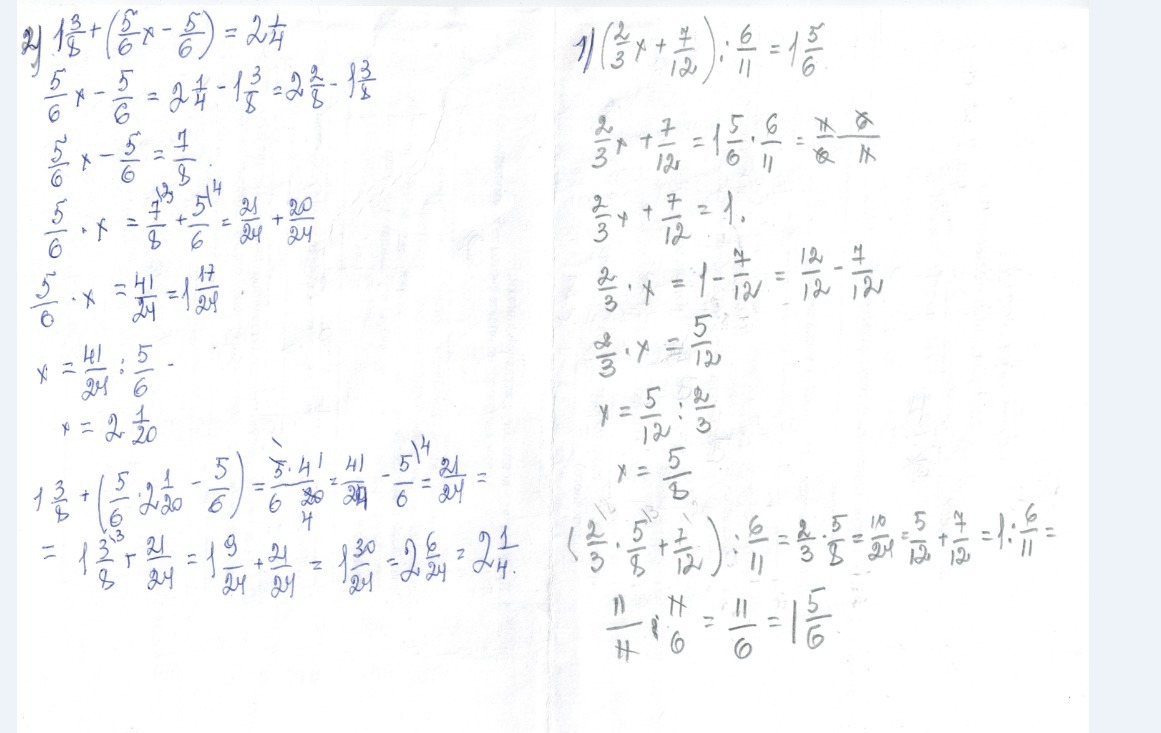 2) 1 3/8 + (5/6 x − 5/6) = 2 1/4
5/6 x − 5/6 = 2 1/4 − 1 3/8 = 2 2/8 − 1 3/8
5/6 x − 5/6 = 7/8.
5/6 · x = 7\3/8 + 5\4/6 = 21/24 + 20/24
5/6 · x = 41/24 = 1 17/24
x = 41/24 : 5/6
x = 2 1/20
1 3/8 + (5/6 · 2 1/20 − 5/6) = 5 · 41/6 20 = 41/24 − 5\4/6 = 21/24 =
= 1 3\3/8 + 21/24 = 1 9/24 + 21/24 = 1 30/24 = 2 6/24 = 2 1/4.
1) (2/3 x + 7/12) : 6/11 = 1 5/6
2/3 x + 7/12 = 1 5/6 · 6/11 = 11/6 6/11
2/3 x + 7/12 = 1.
2/3 · x = 1 − 7/12 = 12/12 − 7/12
2/3 · x = 5/12
x = 5/12 : 2/3
x = 5/8
(2/3 · 5/8 + 7/12) : 6/11 = 2/3 · 5/8 = 10/24 = 5/12 + 7/12 = 1 : 6/11 =
11/11 · 11/6 = 11/6 = 1 5/6